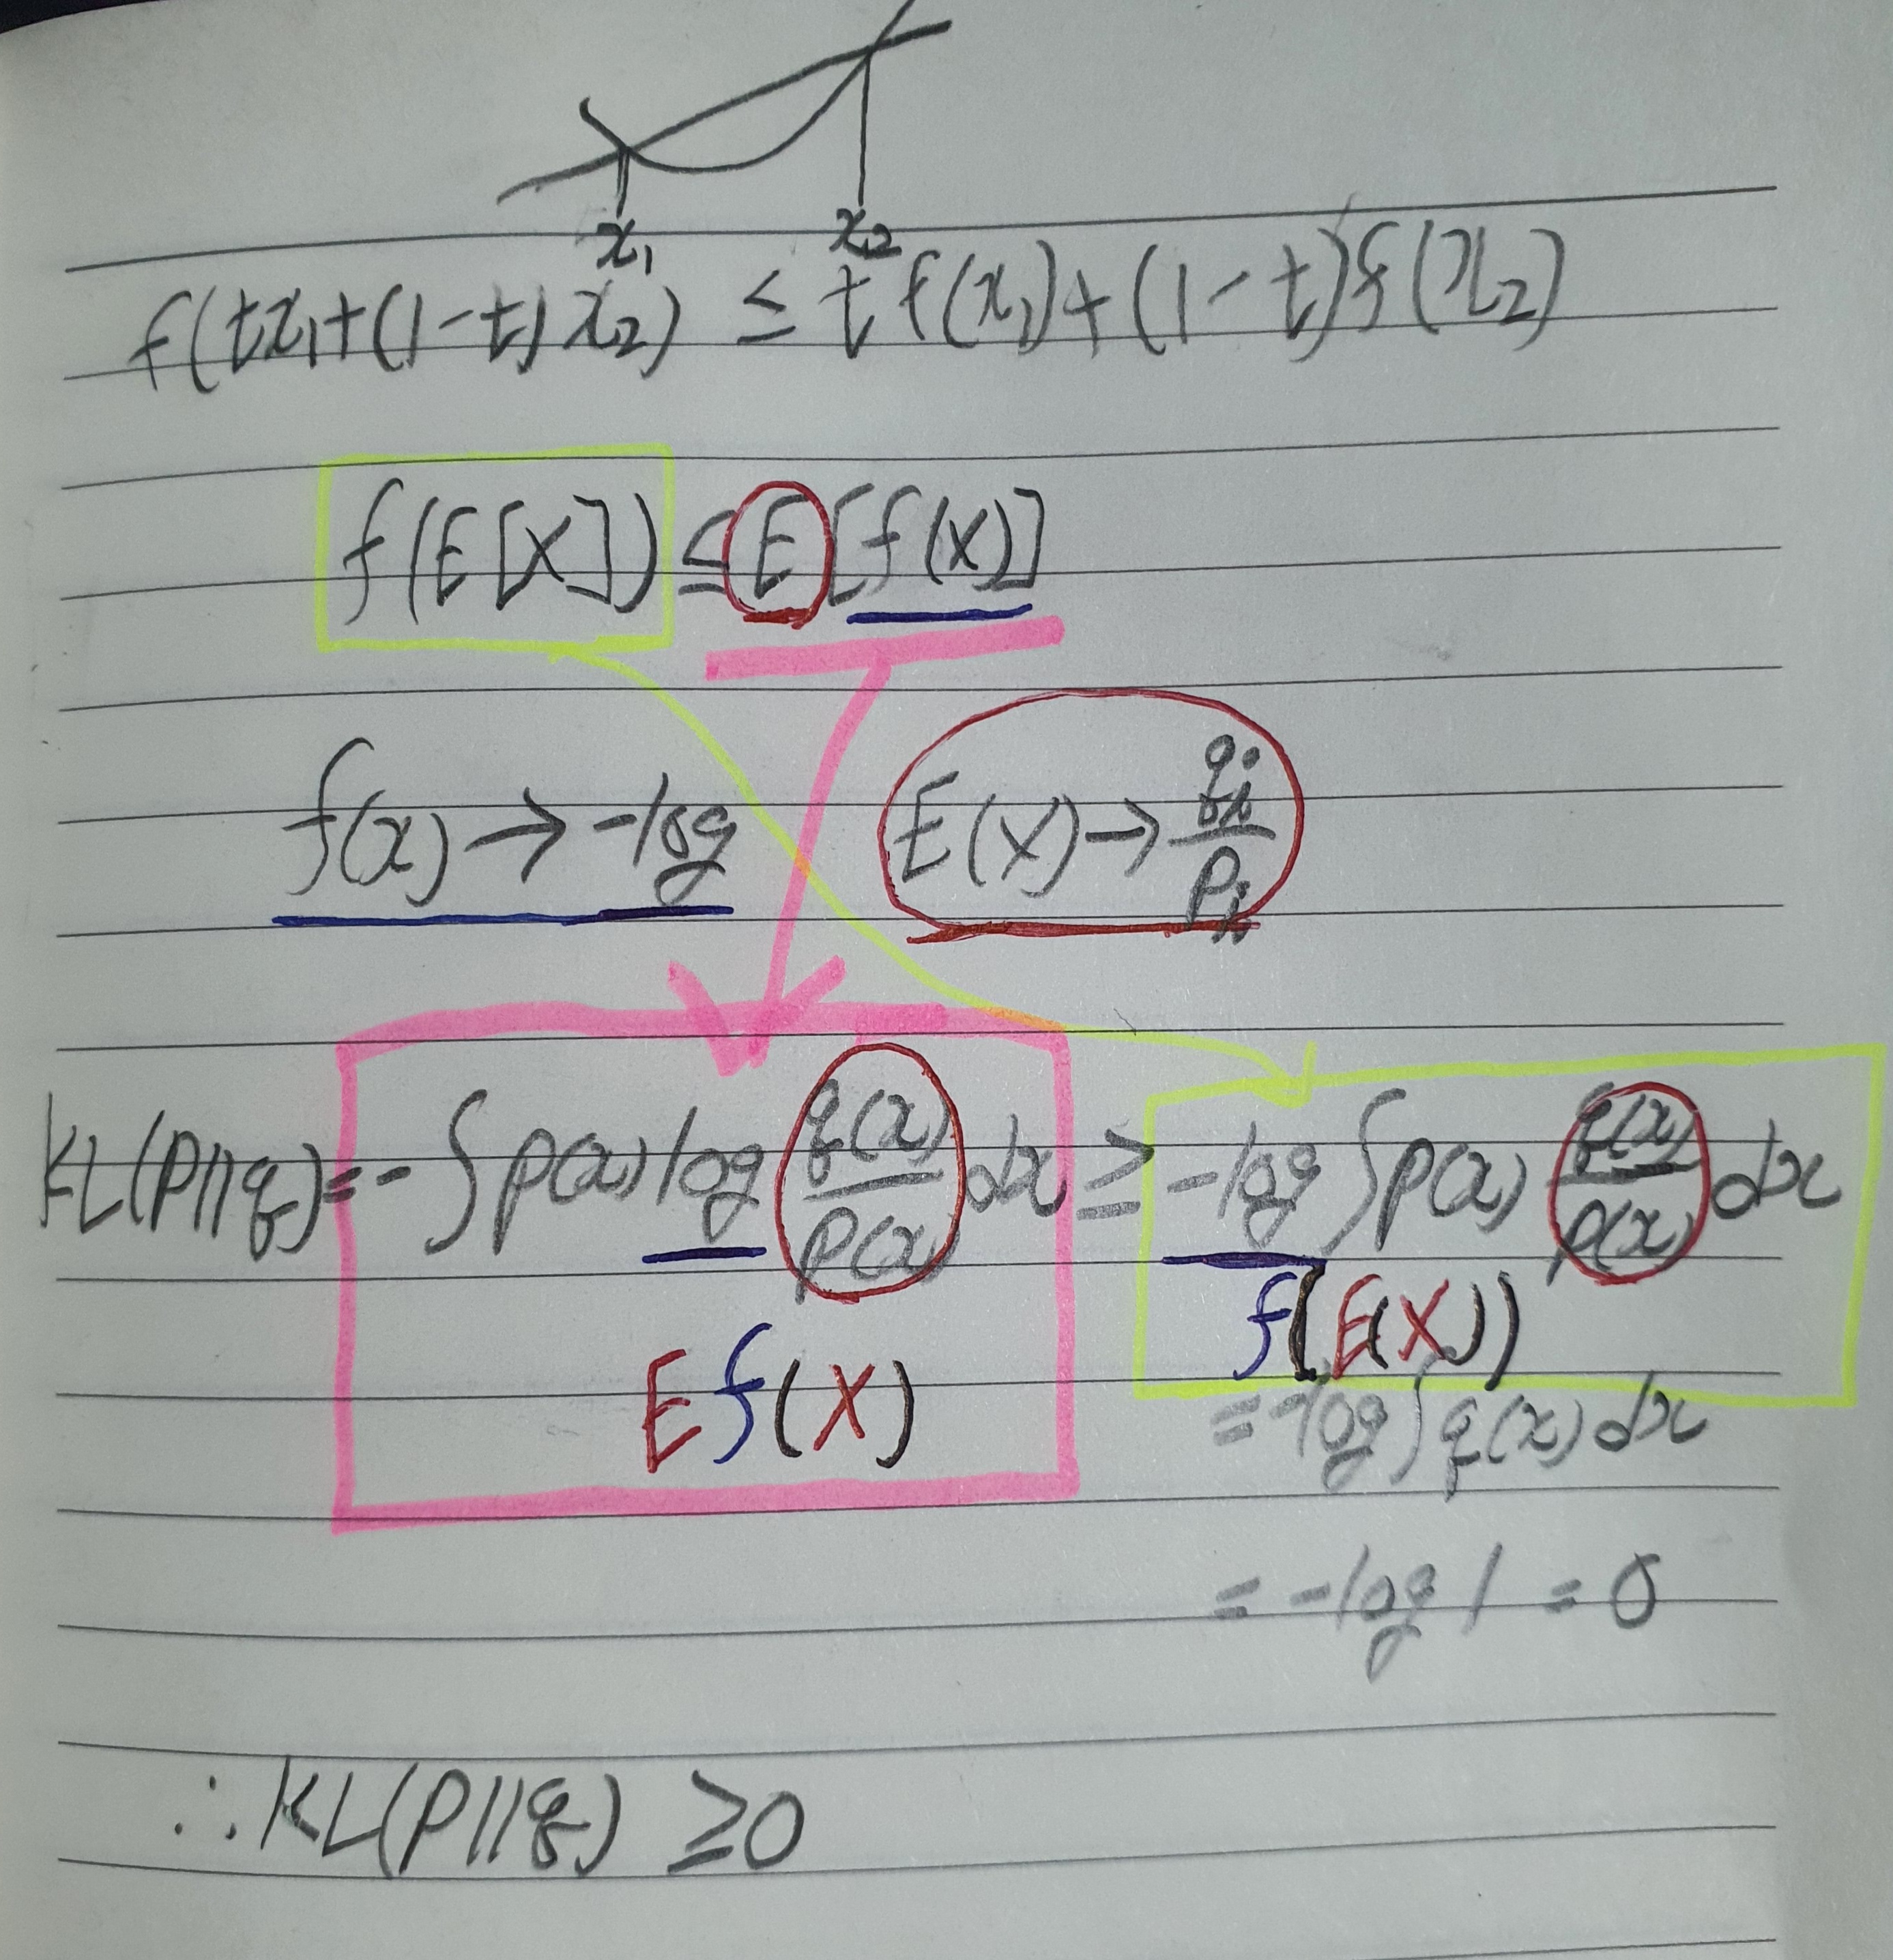 x₁ x₂
f(tx₁+(1-t)x₂) ≤ tf(x₁)+(1-t)f(x₂)
f(E[X]) ≤ E[f(X)]
f(x) → -log E(X) → qᵢ/pᵢ
KL(P||q) = -∫p(x) log q(x)/p(x) dx ≥ -log∫p(x) q(x)/p(x) dx
E f(X) f(E(X))
= -log∫q(x)dx
= -log 1 = 0
∴ KL(P||q) ≥ 0